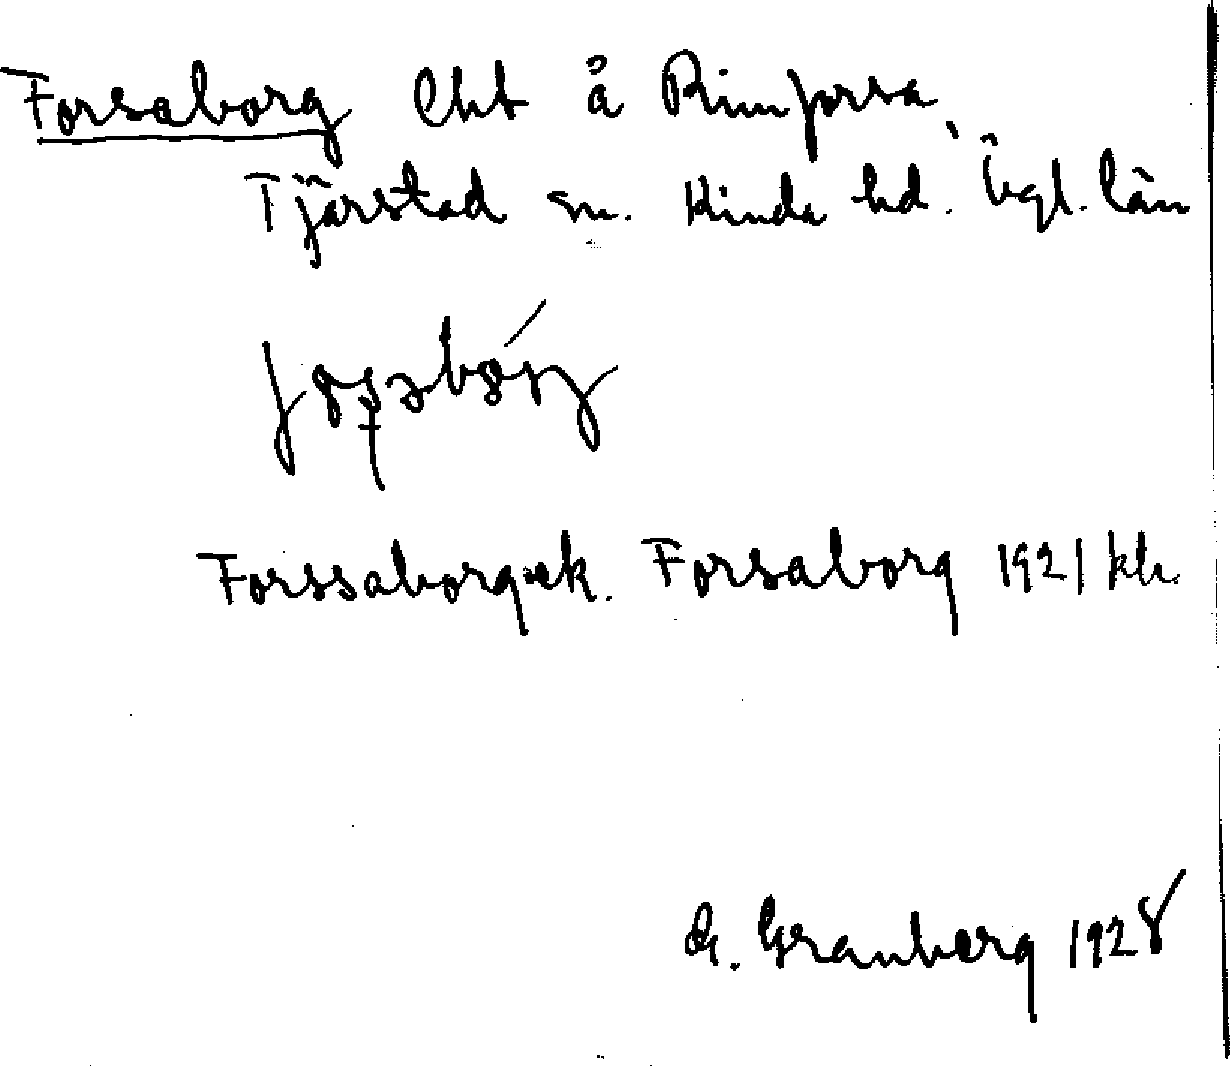 Forsaborg lht å Rimforsa,
Tjärstad sn. Kinda hd. Ögl. län
Forssaborg ek. Forsaborg 1921 kh.
G. Granberg 1928